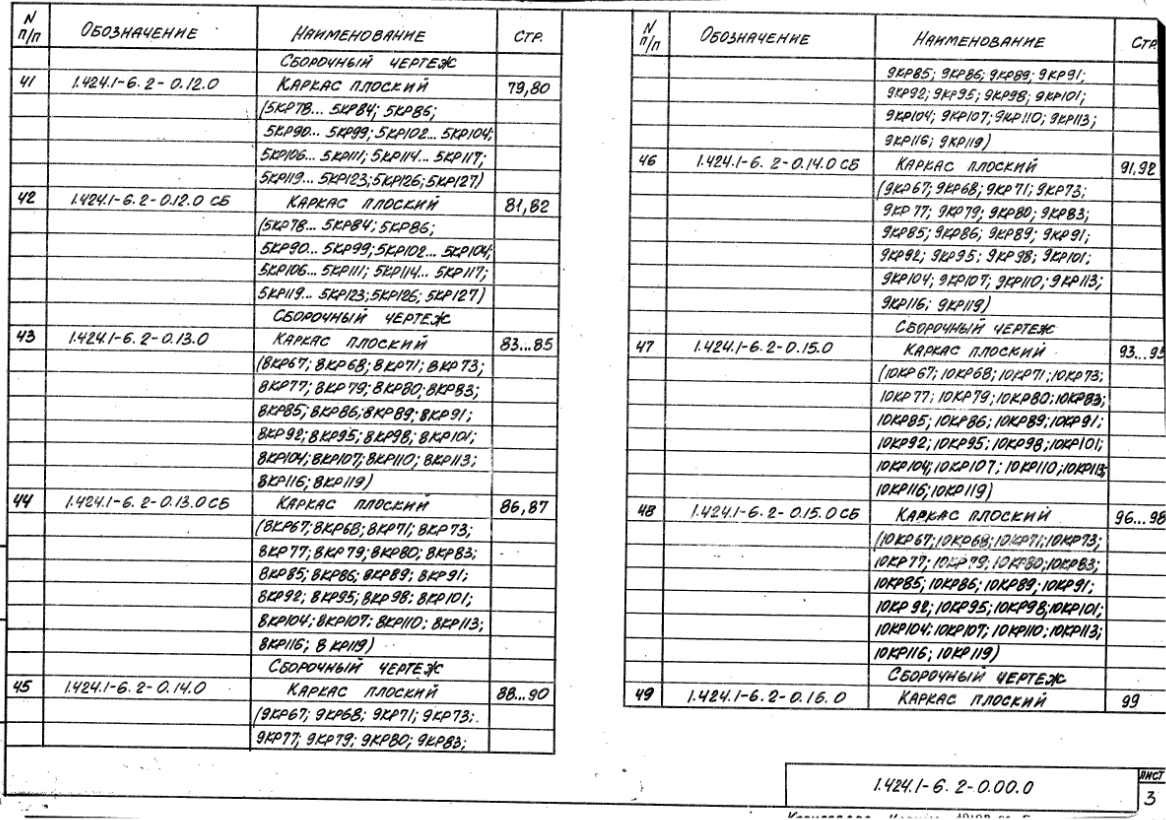 N п/п Обозначение Наименование Стр.
Сборочный чертеж
41 1.424.1-6.2-0.12.0 Каркас плоский 79,80
(5КР78... 5КР84; 5КР86;
5КР90... 5КР99; 5КР102... 5КР104;
5КР106... 5КР111; 5КР114... 5КР117;
5КР119... 5КР123; 5КР126; 5КР127)
42 1.424.1-6.2-0.12.0 СБ Каркас плоский 81,82
(5КР78... 5КР84; 5КР86;
5КР90... 5КР99; 5КР102... 5КР104;
5КР106... 5КР111; 5КР114... 5КР117;
5КР119... 5КР123; 5КР126; 5КР127)
Сборочный чертеж
43 1.424.1-6.2-0.13.0 Каркас плоский 83...85
(8КР67; 8КР68; 8КР71; 8КР73;
8КР77; 8КР79; 8КР80; 8КР83;
8КР85; 8КР86; 8КР89; 8КР91;
8КР92; 8КР95; 8КР98; 8КР101;
8КР104; 8КР107; 8КР110; 8КР113;
8КР116; 8КР119)
44 1.424.1-6.2-0.13.0 СБ Каркас плоский 86,87
(8КР67; 8КР68; 8КР71; 8КР73;
8КР77; 8КР79; 8КР80; 8КР83;
8КР85; 8КР86; 8КР89; 8КР91;
8КР92; 8КР95; 8КР98; 8КР101;
8КР104; 8КР107; 8КР110; 8КР113;
8КР116; 8КР119)
Сборочный чертеж
45 1.424.1-6.2-0.14.0 Каркас плоский 88...90
(9КР67; 9КР68; 9КР71; 9КР73;
9КР77; 9КР79; 9КР80; 9КР83;
N п/п Обозначение Наименование Стр.
9КР85; 9КР86; 9КР89; 9КР91;
9КР92; 9КР95; 9КР98; 9КР101;
9КР104; 9КР107; 9КР110; 9КР113;
9КР116; 9КР119)
46 1.424.1-6.2-0.14.0 СБ Каркас плоский 91,92
(9КР67; 9КР68; 9КР71; 9КР73;
9КР77; 9КР79; 9КР80; 9КР83;
9КР85; 9КР86; 9КР89; 9КР91;
9КР92; 9КР95; 9КР98; 9КР101;
9КР104; 9КР107; 9КР110; 9КР113;
9КР116; 9КР119)
Сборочный чертеж
47 1.424.1-6.2-0.15.0 Каркас плоский 93...95
(10КР67; 10КР68; 10КР71; 10КР73;
10КР77; 10КР79; 10КР80; 10КР83;
10КР85; 10КР86; 10КР89; 10КР91;
10КР92; 10КР95; 10КР98; 10КР101;
10КР104; 10КР107; 10КР110; 10КР113;
10КР116; 10КР119)
48 1.424.1-6.2-0.15.0 СБ Каркас плоский 96...98
(10КР67; 10КР68; 10КР71; 10КР73;
10КР77; 10КР79; 10КР80; 10КР83;
10КР85; 10КР86; 10КР89; 10КР91;
10КР92; 10КР95; 10КР98; 10КР101;
10КР104; 10КР107; 10КР110; 10КР113;
10КР116; 10КР119)
Сборочный чертеж
49 1.424.1-6.2-0.16.0 Каркас плоский 99
1.424.1-6.2-0.00.0
Лист
3